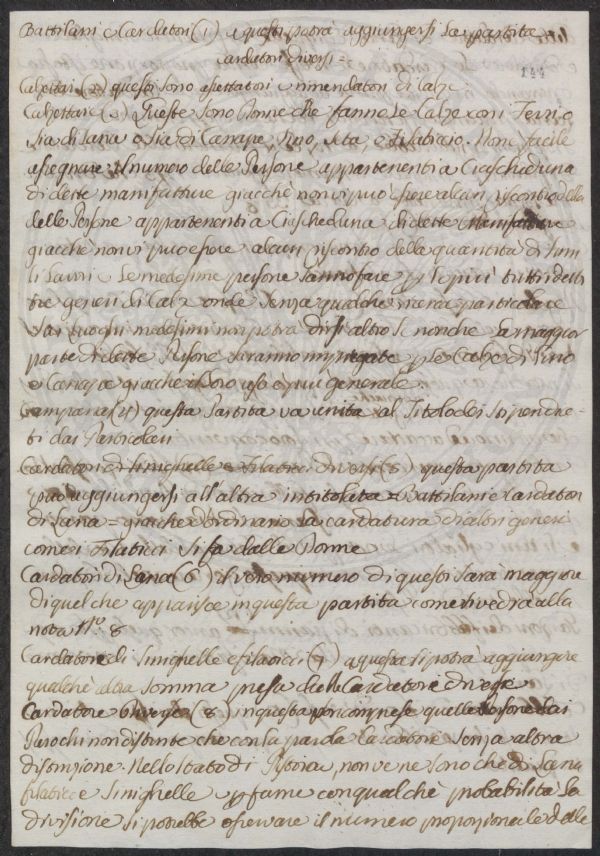 Battilani e Cardatori (1) a questi potrà aggiungersi la partita
Cardatori diversi =
144
Calzettai (2) questi sono assettatori e mendatori di Calze
Calzettare (3) Queste sono Donne che fanno le Calze con i Ferri o
sia di Lana o sia di Canape, Lino, Seta e Filaticcio. Non è facile
assegnare il numero delle Persone appartenenti a Ciascheduna
di dette manifatture giacchè non vi può essere alcun riscontro della
delle Persone appartenenti a Ciascheduna di dette Manifatture
giacchè non vi può essere alcun riscontro della quantità di simi
li lavori e le medesime persone sanno fare p lo più tutti detti
tre generi di Calze onde senza qualche ricerca particolare
dai luoghi medesimi non potrà dirsi altro se non che la maggior
parte di dette Persone saranno impiegate p le Calze di Lino
e Canapa giacchè il loro uso è più generale
Campanai (4) questa Partita va unita al Titolo dei Stipendia-
ti dai Particolari
Cardatori di Sinighelle e Filaticci diversi (5) questa partita
può aggiungersi all'altra intitolata = Battilani e Cardatori
di Lana = giacchè d'ordinario la cardatura di altri generi
come i Filaticci si fa dalle Donne
Cardatori di Lana (6) il vero numero di questi sarà maggiore
di quel che apparisce in questa partita come si vedrà alla
nota N.o 8
Cardatore di Sinighelle e filaticci (7) a questa si potrà aggiungere
qualche altra somma presa dalle Cardatore diverse
Cardatore diverse (8) in questa son comprese quelle Persone dai
Parochi non distinte che con la parola Cardatore senza altra
distinzione. Nello Stato di Pistoia, non ve ne sono che di Lana
filaticci e Sinighelle e p farne con qualche probabilità la
divisione si potrebbe osservare il numero proporzionale delle